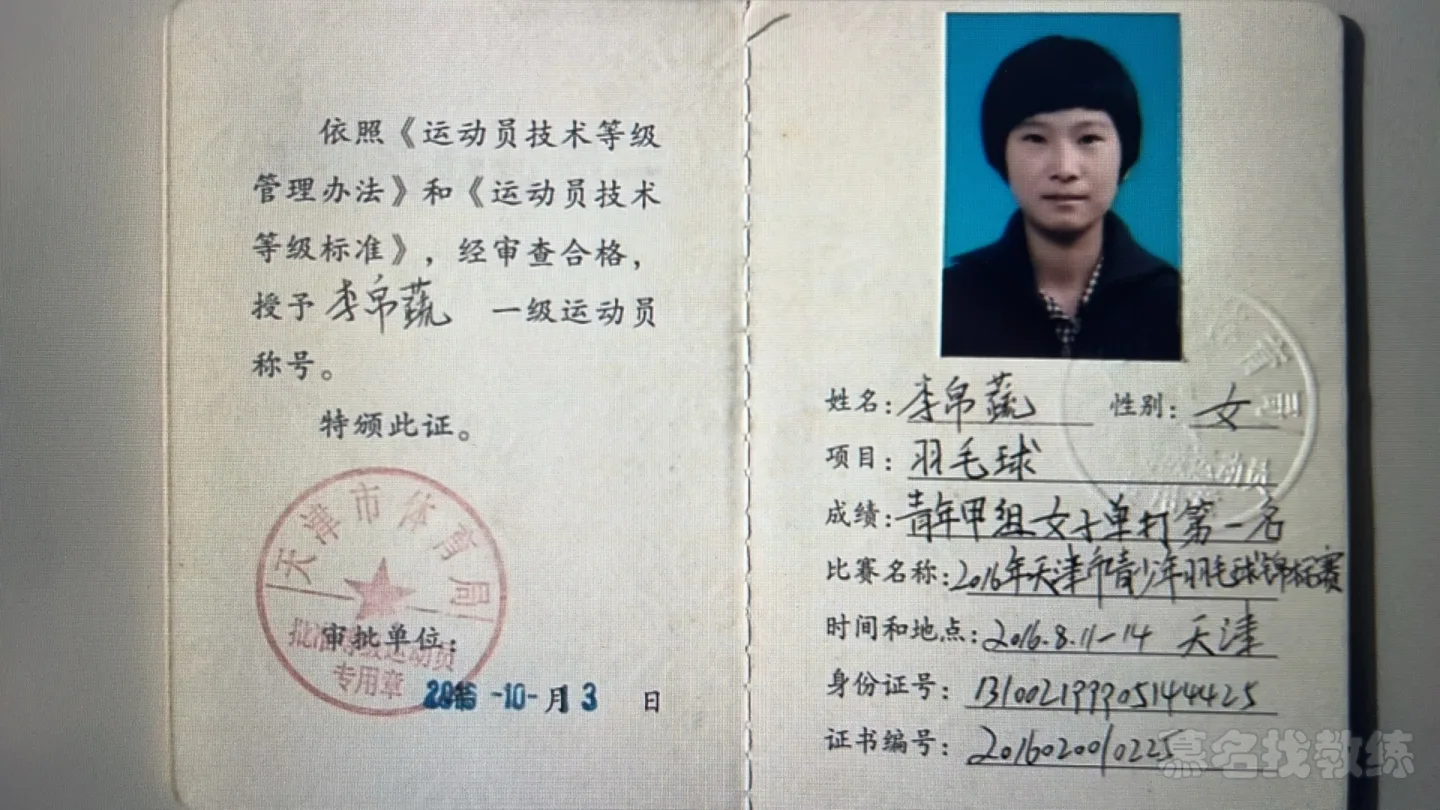 依照《运动员技术等级
管理办法》和《运动员技术
等级标准》，经审查合格，
授予 李帛蔬 一级运动员
称号。
特颁此证。
天津市体育局
审批单位：
批准等级运动员
专用章
2016-10-月13日
姓名：李帛蔬 性别：女
项目：羽毛球
成绩：青年甲组女子单打第一名
比赛名称：2016年天津市青少年羽毛球锦标赛
时间和地点：2016.8.11-14 天津
身份证号：131002199905144425
证书编号：2016020010225
慕名找教练